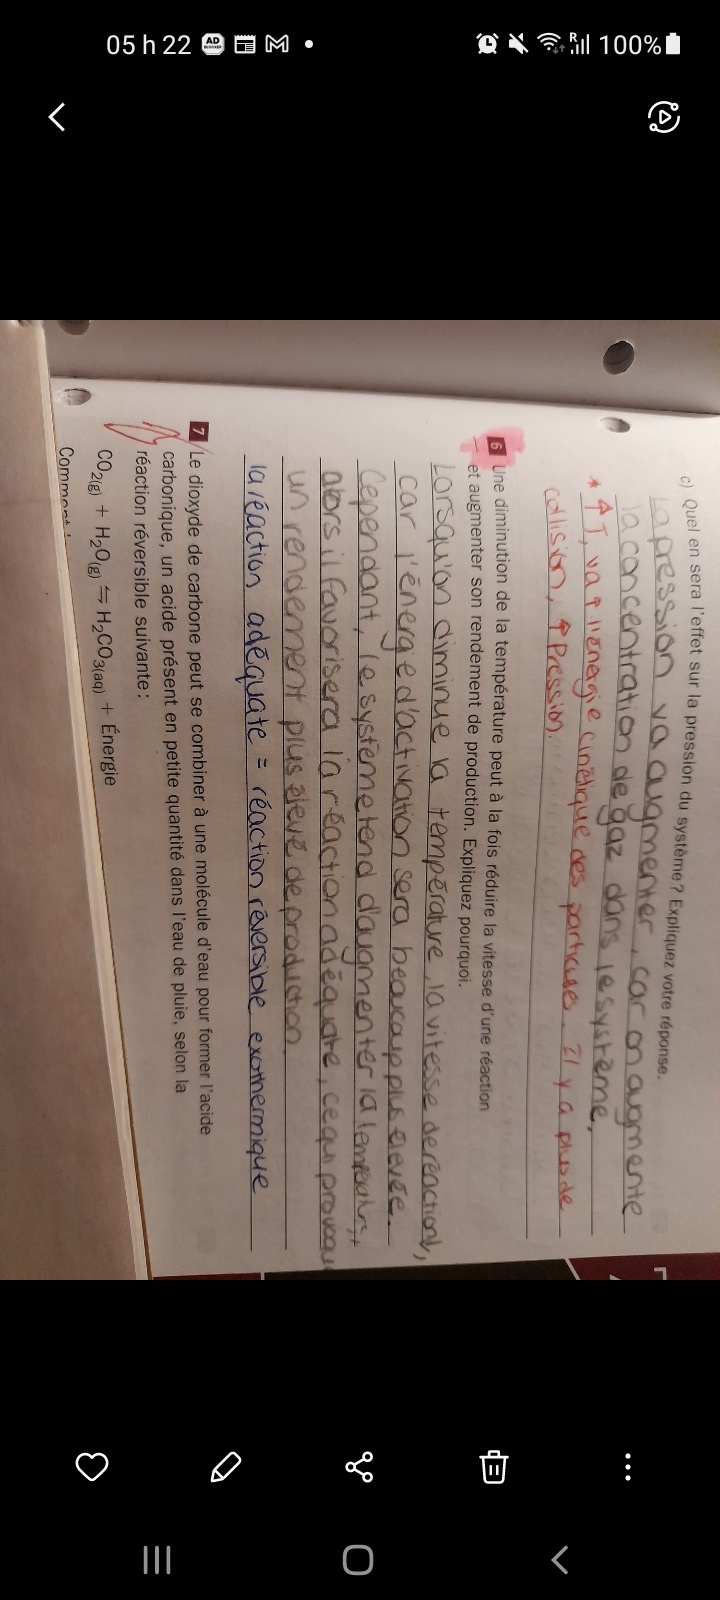 05 h 22
AD
BLOCKER
R
100%
c) Quel en sera l'effet sur la pression du système? Expliquez votre réponse.
La pression va augmenter, car on augmente
la concentration de gaz dans le système.
* ↑ T, va ↑ l'énergie cinétique des particules. Il y a plus de
collision, ↑ Pression.
6 Une diminution de la température peut à la fois réduire la vitesse d'une réaction
et augmenter son rendement de production. Expliquez pourquoi.
Lorsqu'on diminue la température, la vitesse de réaction ↓,
car l'énergie d'activation sera beaucoup plus élevée.
Cependant, le système tend d'augmenter la température,
alors il favorisera la réaction adéquate, ce qui provoque
un rendement plus élevé de production
la réaction adéquate = réaction réversible exothermique
7 Le dioxyde de carbone peut se combiner à une molécule d'eau pour former l'acide
carbonique, un acide présent en petite quantité dans l'eau de pluie, selon la
réaction réversible suivante:
CO2(g) + H2O(g) ⇌ H2CO3(aq) + Énergie